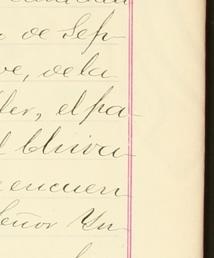 de Sep-
ve, de la
ler, el pa-
l Chiva-
encuen
Señor Yn-